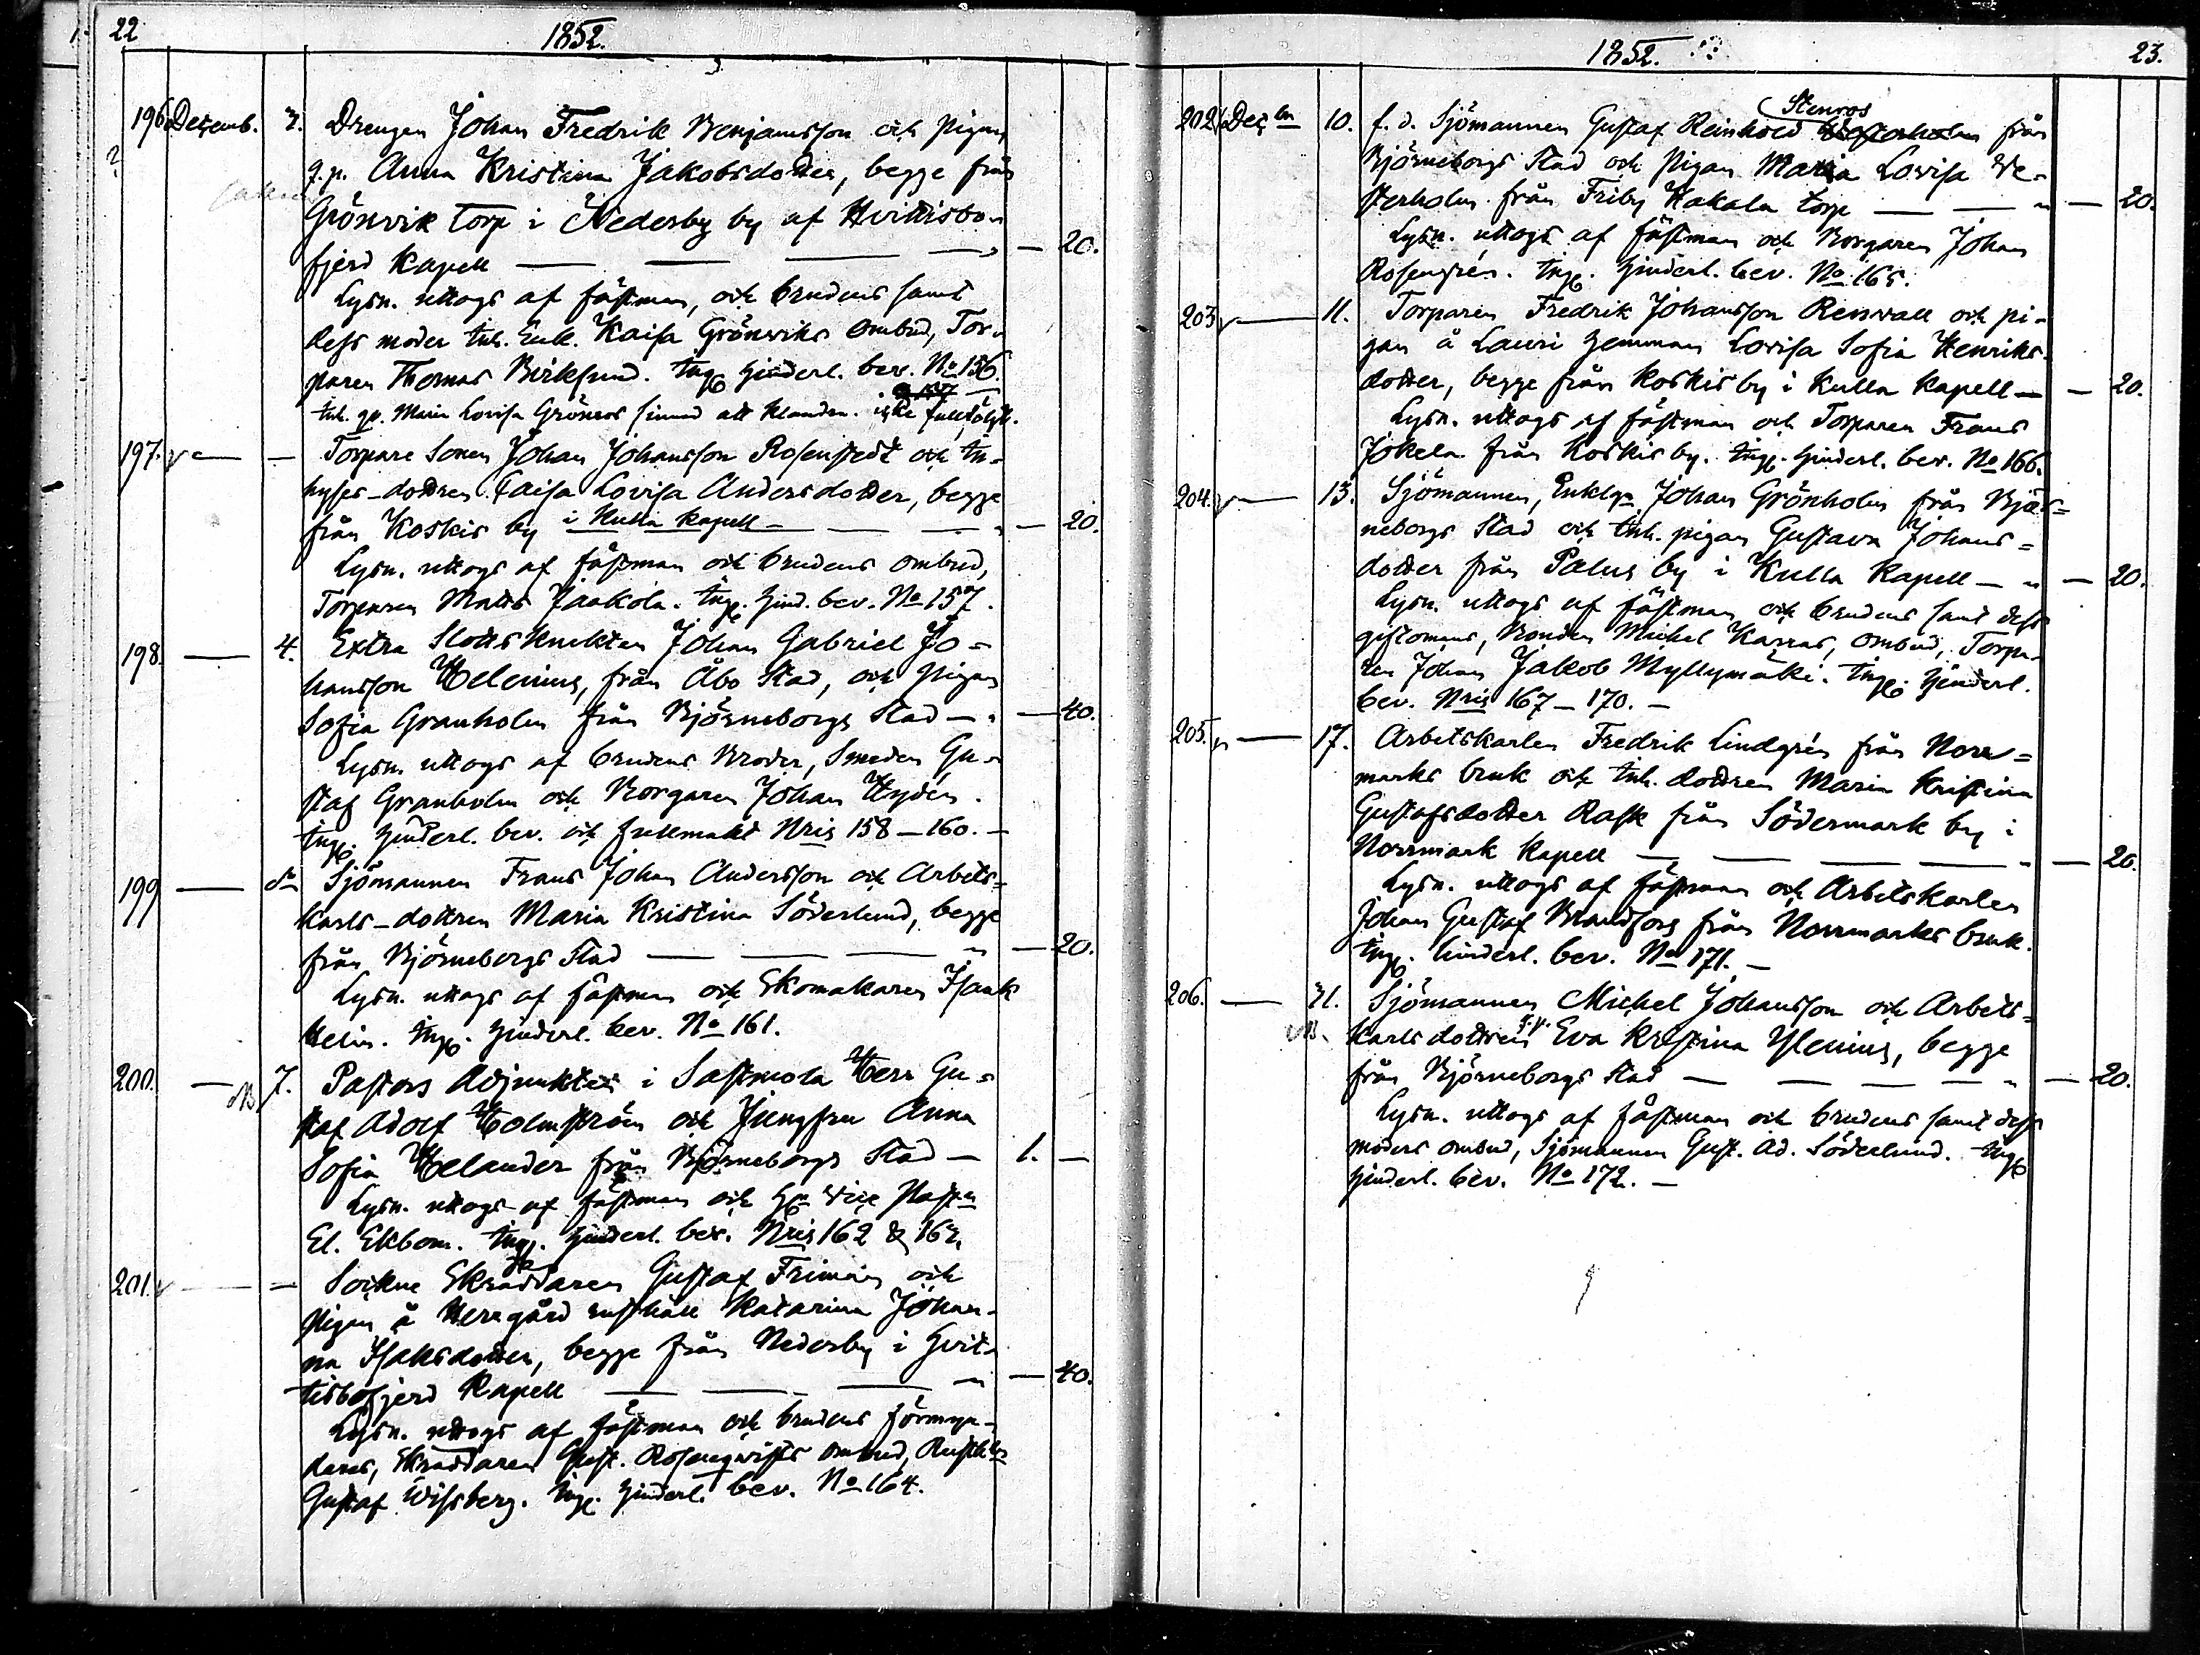 22
1852.
196 Decemb. 3. Drengen Johan Fredrik Benjamsson och pigan
? q.p. Anna Kristina Jakobsdotter, begge från
Grönvik torp i Nederby by af Hvittisbo-
fjerd Kapell — — — — 20.
Lysn. uttogs af fästman, och brudens samt
dess moder Inh. Enk. Kaisa Grönviks ombud, Tor-
paren Thomas Birklund. Ing. hinderl. bev. No 156.
Inh. qp. Maria Lovisa Grönroos icke fullfölgt.
197. v — — Torpare Sonen Johan Johansson Rosenstedt och In-
hyses-dottren Caisa Lovisa Andersdotter, begge
från Koskis by i Kulla Kapell — — — " — 20.
Lysn. uttogs af fästman och brudens ombud,
Torparen Matts Jaakola. Ing. hind. bev. No 157.
198. — 4. Extra Slotts Knekten Johan Gabriel Jo=
hansson Helenius, från Åbo Stad, och pigan
Sofia Granholm från Björneborgs Stad — " — 40.
Lysn. uttogs af brudens Broder, Smeden Gu-
staf Granholm och Borgaren Johan Hydén.
Ing. hinderl. bev. och fullmakt Nris 158 — 160. —
199 — do Sjömannen Frans Johan Andersson och Arbets=
karls-dottren Maria Kristina Söderlund, begge
från Björneborgs Stad — — — " — 20.
Lysn. uttogs af fästman och Skomakaren Isaak
Helin. Ing. hinderl. bev. No 161.
200. — NB 7. Pastors Adjunkten i Sastmola Herr Gu=
staf Adolf Holmström och Jungfru Anna
Sofia Helander från Björneborgs Stad — 1. —
Lysn. uttogs af fästman och Hr Vice Past.
El. Ekbom. Ing. hinderl. bev. Nris 162 & 163.
201. v — — Sockne Skräddaren Gustaf Friman och
pigan å Herrgård rusthåll Katarina Johan-
na Isaksdotter, begge från Nederby i Hvit-
tisbofjerd Kapell — — — " — 40.
Lysn. uttogs af fästman och brudens förmyn-
dares, Skräddaren Gust. Rosenqwists ombud,
Gustaf Wissberg. Ing. hinderl. bev. No 164.
1852.
23.
202 v Decbr 10. f. d. Sjömannen Gustaf Reinhold Stenros från
Björneborgs Stad och pigan Maria Lovisa We-
sterholm från Friby Kakala torp — — " — 20.
Lysn. uttogs af fästman och Borgaren Johan
Rosengrén. Ing. hinderl. bev. No 165.
203 v — 11. Torparen Fredrik Johansson Renwall och pi-
gan å Lauri hemman Lovisa Sofia Henriks-
dotter, begge från Koskis by i Kulla Kapell — — 20.
Lysn. uttogs af fästman och Torparen Frans
Jokela från Koskis by. Ing. hinderl. bev. No 166.
204. v — 13. Sjömannen, Enklgn Johan Grönholm från Björ=
neborgs Stad och Inh. pigan Gustava Johans=
dotter från Palus by i Kulla Kapell — " — 20.
Lysn. uttogs af fästman och brudens samt dess
giftomans, Bonden Michel Karras, ombud, Torpa-
ren Johan Jakob Myllymäki. Ing. hinderl.
bev. Nris 167 — 170. —
205. v — 17. Arbetskarlen Fredrik Lindgrén från Norr=
marks bruk och Inh. dottren Maria Kristina
Gustafsdotter Rask från Södermark by i
Norrmark Kapell — — — — " — 20.
Lysn. uttogs af fästman och Arbetskarlen
Johan Gustaf Brandfors från Norrmarks bruk.
Ing. hinderl. bev. No 171. —
206. — 31. Sjömannen Michel Johansson och Arbets=
NB. karls dottren q.p. Eva Kristina Ylenius, begge
från Björneborgs Stad — — — — " — 20.
Lysn. uttogs af fästman och brudens samt dess
moders ombud, Sjömannen Gust. Ad. Söderlund. Ing.
hinderl. bev. No 172. —